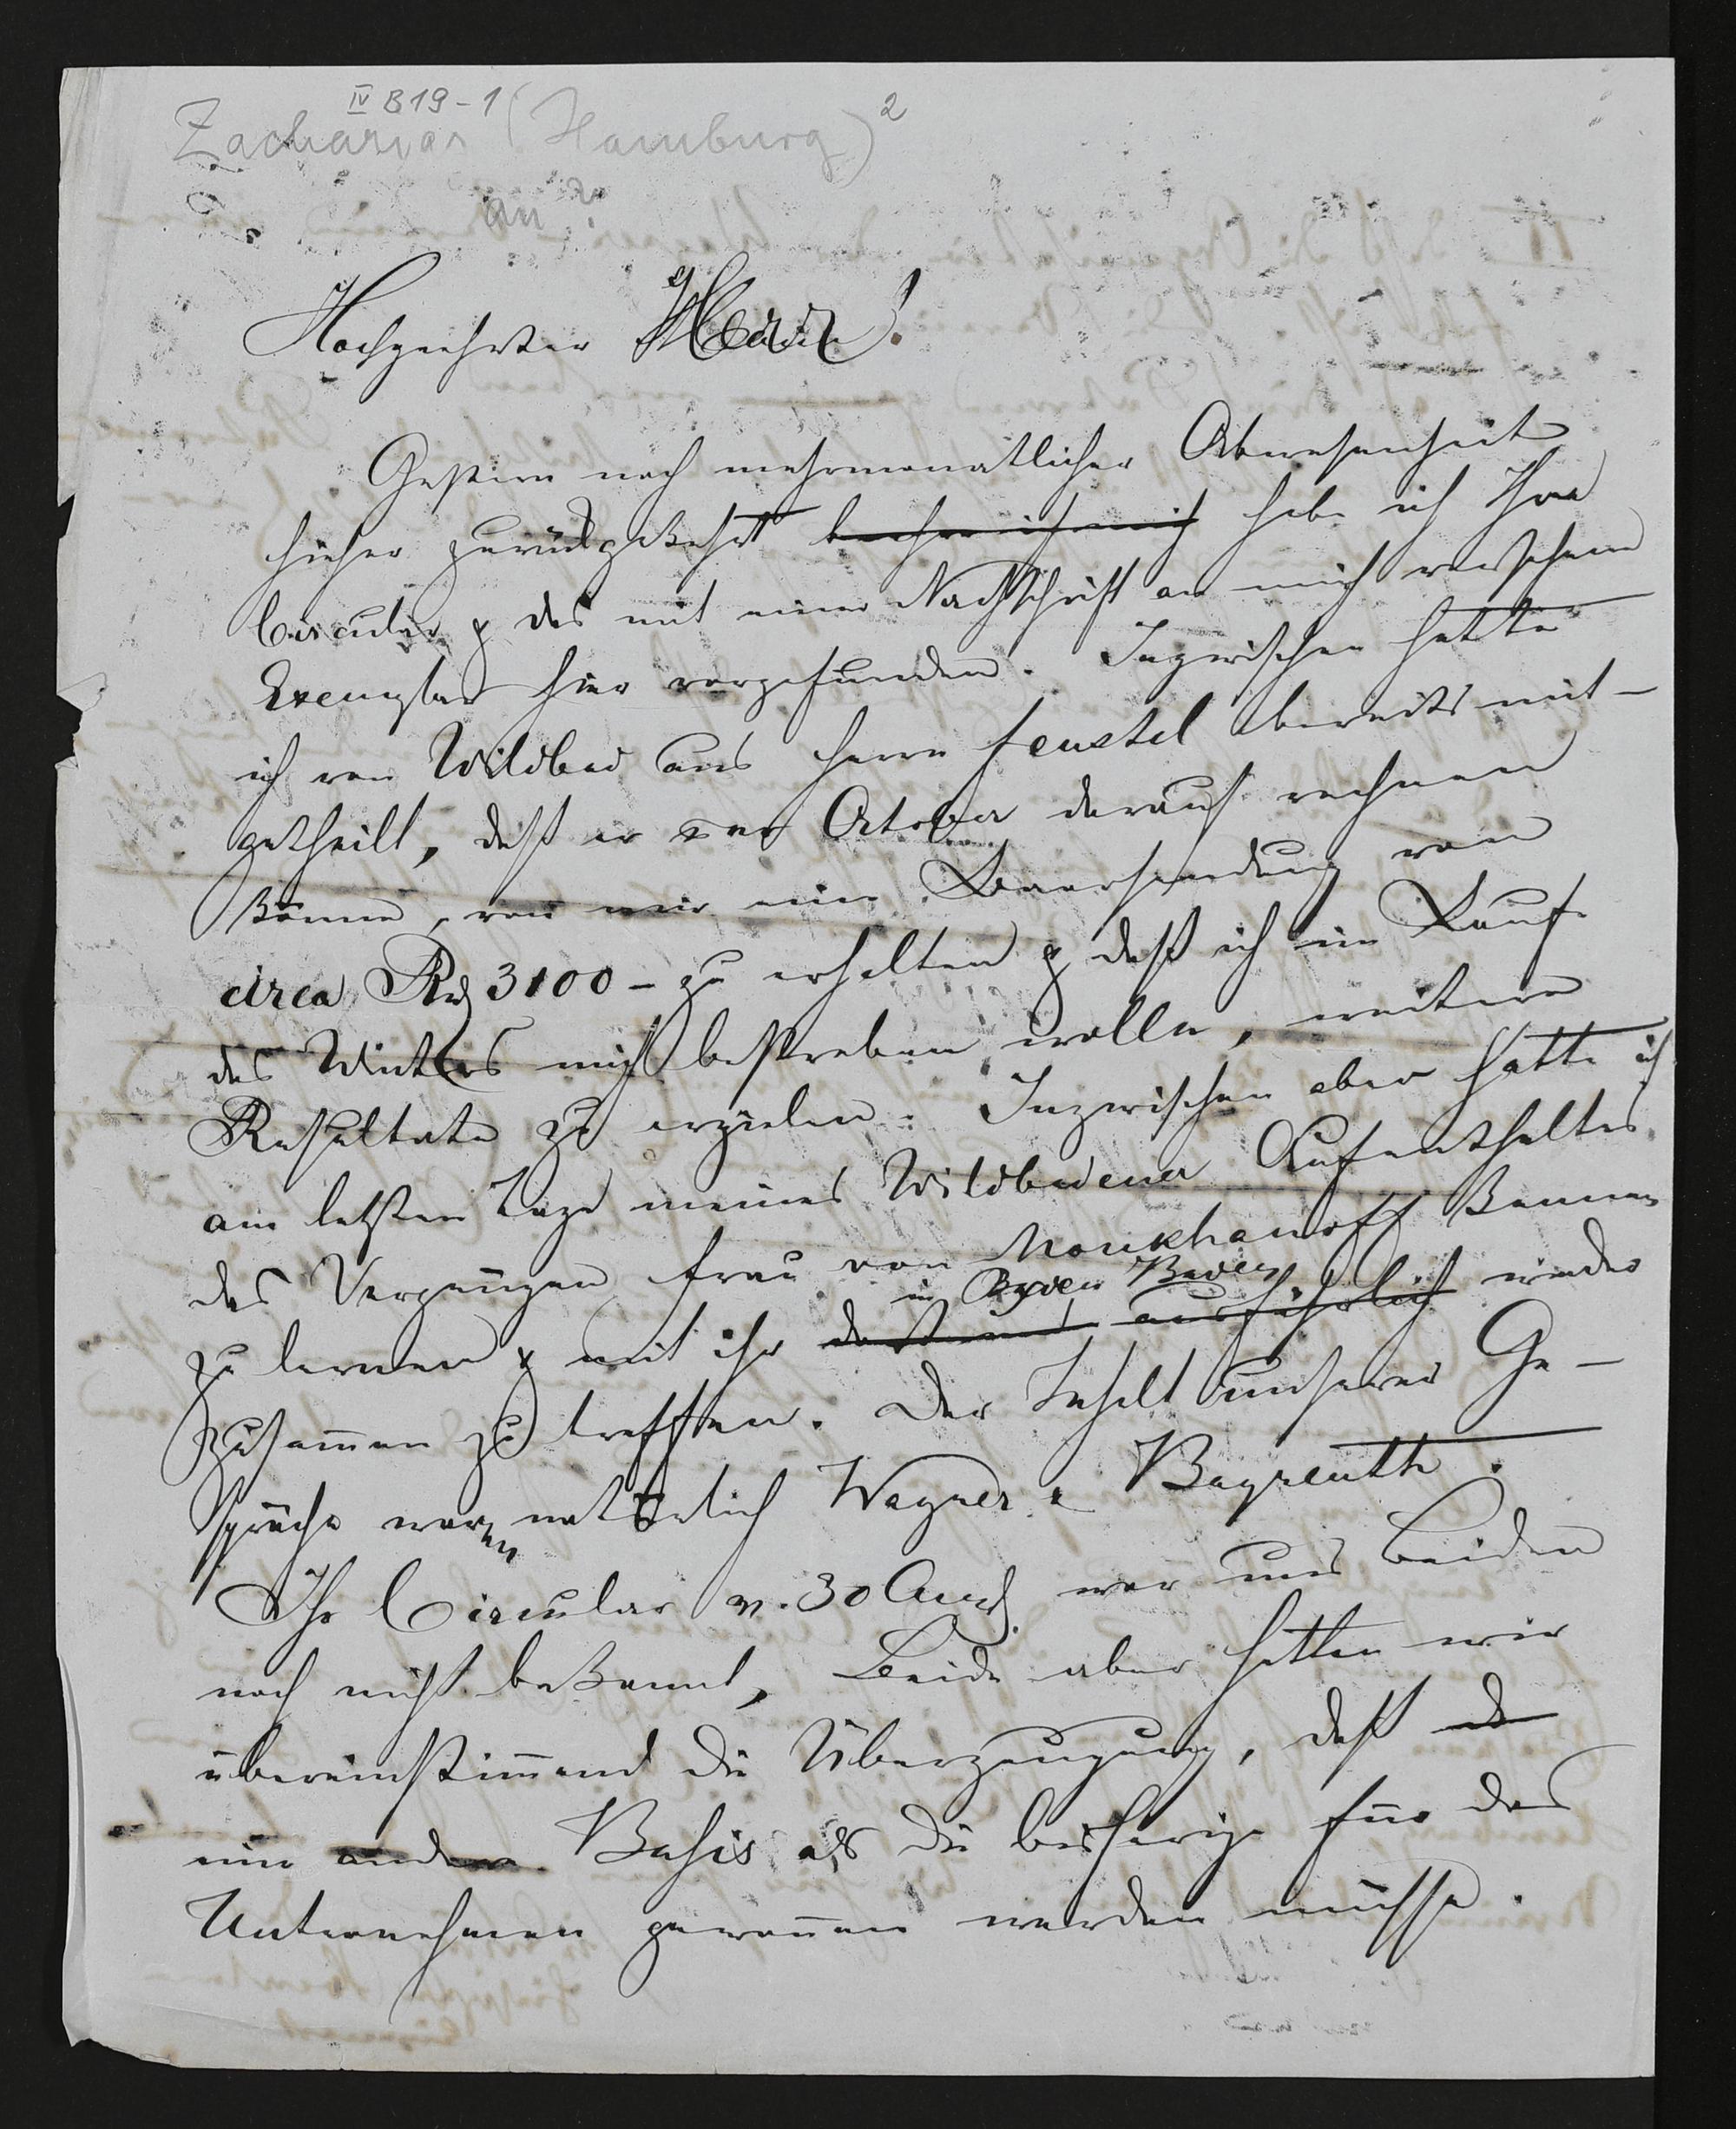 IV B 19 - 1
Zacharias (Hamburg) 2
an ?
Hochgeehrter Herr!
Gestern nach mehrmonatlicher Abwesenheit
hieher zurückgekehrt habe ich Ihre
Circular & das mit einer Nachschrift an mich versehene
Exemplar hier vorgefunden. Inzwischen hatte
ich von Wildbad aus Herrn Feustel bereits mit-
getheilt, daß er per October darauf rechnen
könne, von mir eine Baarsendung von
circa Rth 3100 - zu erhalten & daß ich im Lauf
des Winters mich bestreben wolle, weitere
Resultate zu erzielen. Inzwischen aber hatte ich
am letzten Tage meines Wildbadener Aufenthaltes
das Vergnügen Frau von Moukhanoff kennen
in Baden Baden
zu lernen & mit ihr ausführlich wieder
zusammen zu treffen. Der Inhalt unserer Ge-
spräche waren natürlich Wagner & Bayreuth.
Ihr Circular v. 30 Aug. war uns Beiden
noch nicht bekannt, Beide aber hatten wir
übereinstimmend die Überzeugung, daß
eine andere Basis als die bisherige für das
Unternehmen gewonnen werden müsse.